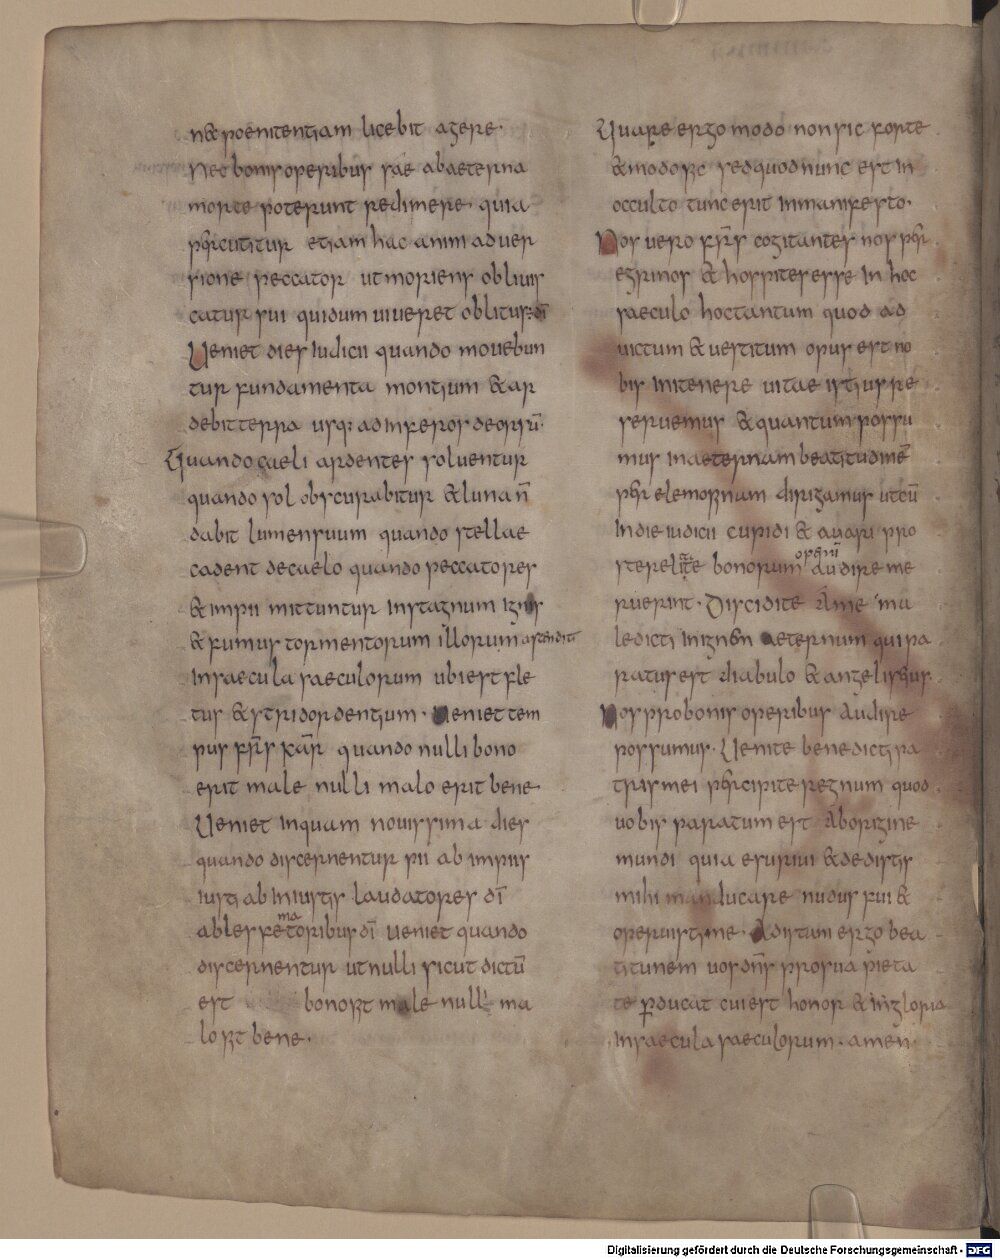 n& poenitentiam licebit agere·
Nec bonis operibus sae ab aeterna
morte poterunt redimere quia
percutitur etiam hac animaduer
sione peccator ut moriens obliuis
catur sui qui dum uiueret oblitus: dī
Ueniet dies iudicii quando mouebun
tur fundamenta montium & ar
debit terra usq: ad inferos deorsū·
Quando caeli ardentes soluentur
quando sol obscurabitur & luna n̄
dabit lumen suum quando stellae
cadent de caelo quando peccatores
& impii mittuntur in stagnum ignis
& fumus tormentorum illorum ascendit
in saecula saeculorum ubi est fle
tus & stridor dentium· Ueniet tem
pus frs̄ kar̄ quando nulli bono
erit male nulli malo erit bene
Ueniet inquam nouissima dies
quando discernentur pii ab impiis
iusti ab iniustis laudatores dī
ma
ab lesfetoribus dī ueniet quando
discernentur ut nulli sicut dictū
est bono sit male nulli ma
lo sit bene·
Quare ergo modo non sic forte
& modo sic sed quod nunc est in
occulto tunc erit in manifesto·
Nos uero frs̄ cogitantes nos per
egrinos & hospites esse in hoc
saeculo hoc tantum quod ad
uictum & uestitum opus est no
bis in itenere uitae istius re
seruemus & quantum possu
mus in aeternam beatitudinē
per elemosinam dirigamus ut cū
in die iudicii cupidi & auari pro
operū
sterelitate bonorum audire me
ruerint· Discidite a me ma
ledicti in ignem aeternum qui pa
ratus est diabulo & angelis eius
Nos pro bonis operibus audire
possumus· Uenite benedicti pa
tris mei percipite regnum quod
uobis paratum est ab origine
mundi quia esuriui & dedistis
mihi manducare nudus fui &
operuistis me· Ad istam ergo bea
titunem uos dns̄ pro sua pieta
te perducat cui est honor & in gloria
in saecula saeculorum· amen·
Digitalisierung gefördert durch die Deutsche Forschungsgemeinschaft - DFG